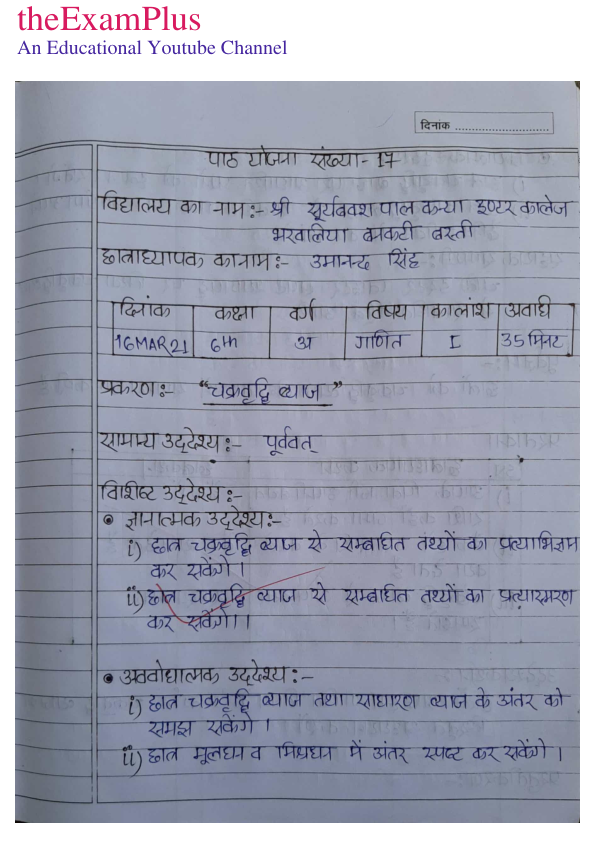 theExamPlus
An Educational Youtube Channel
दिनांक ..............................
पाठ योजना संख्या- 17
विद्यालय का नाम:- श्री सूर्यबक्श पाल कन्या इण्टर कालेज
भरवलिया बनकटी बस्ती
छात्राध्यापक का नाम:- उमानन्द सिंह
दिनांक कक्षा वर्ग विषय कालांश अवधि
16MAR21 6th अ गणित I 35 मिनट
प्रकरण:- "चक्रवृद्धि ब्याज"
सामान्य उद्देश्य:- पूर्ववत्
विशिष्ट उद्देश्य:-
• ज्ञानात्मक उद्देश्य:-
i) छात्र चक्रवृद्धि ब्याज से सम्बंधित तथ्यों का प्रत्याभिज्ञान
कर सकेंगे।
ii) छात्र चक्रवृद्धि ब्याज से सम्बंधित तथ्यों का प्रत्यास्मरण
कर सकेंगे।।
• अवबोधात्मक उद्देश्य:-
i) छात्र चक्रवृद्धि ब्याज तथा साधारण ब्याज के अंतर को
समझ सकेंगे।
ii) छात्र मूलधन व मिश्रधन में अंतर स्पष्ट कर सकेंगे।